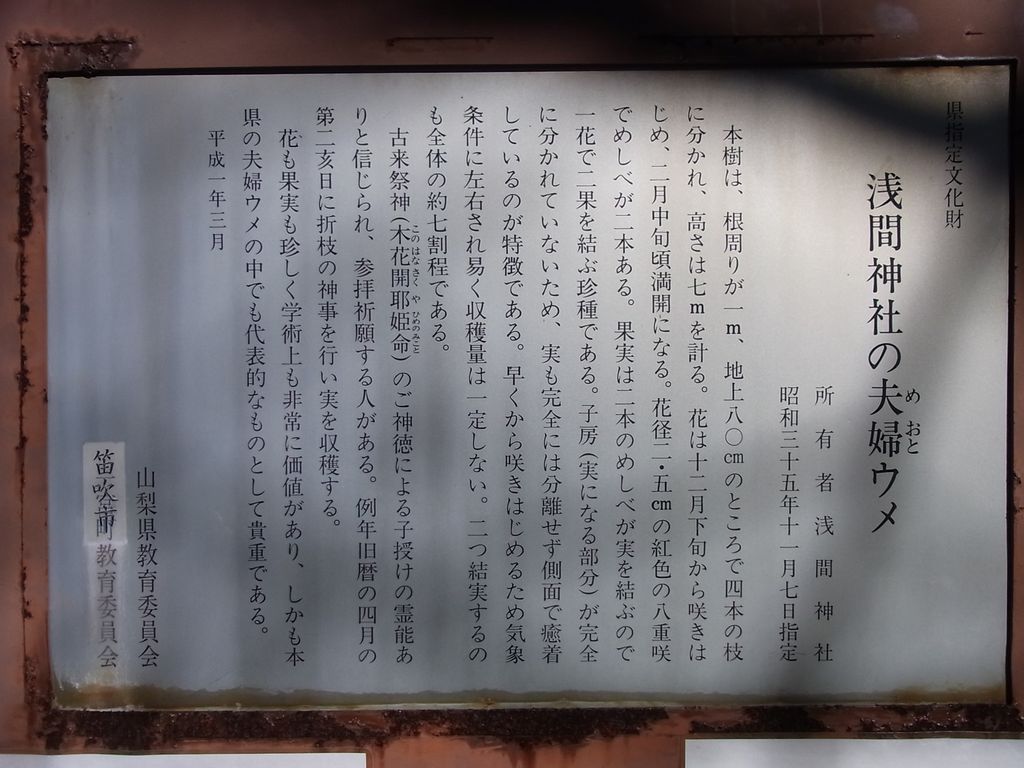 県指定文化財
浅間神社の夫婦ウメ
めおと
所有者浅間神社
昭和三十五年十一月七日指定
本樹は、根周りが一m、地上八〇cmのところで四本の枝
に分かれ、高さは七mを計る。花は十二月下旬から咲きは
じめ、二月中旬頃満開になる。花径二・五cmの紅色の八重咲
でめしべが二本ある。果実は二本のめしべが実を結ぶので
一花で二果を結ぶ珍種である。子房(実になる部分)が完全
に分かれていないため、実も完全には分離せず側面で癒着
しているのが特徴である。早くから咲きはじめるため気象
条件に左右され易く収穫量は一定しない。二つ結実するの
も全体の約七割程である。
古来祭神(木花開耶姫命)のご神徳による子授けの霊能あ
このはなさくやひめのみこと
りと信じられ、参拝祈願する人がある。例年旧暦の四月の
第二亥日に折枝の神事を行い実を収穫する。
花も果実も珍しく学術上も非常に価値があり、しかも本
県の夫婦ウメの中でも代表的なものとして貴重である。
平成一年三月
山梨県教育委員会
笛吹市教育委員会